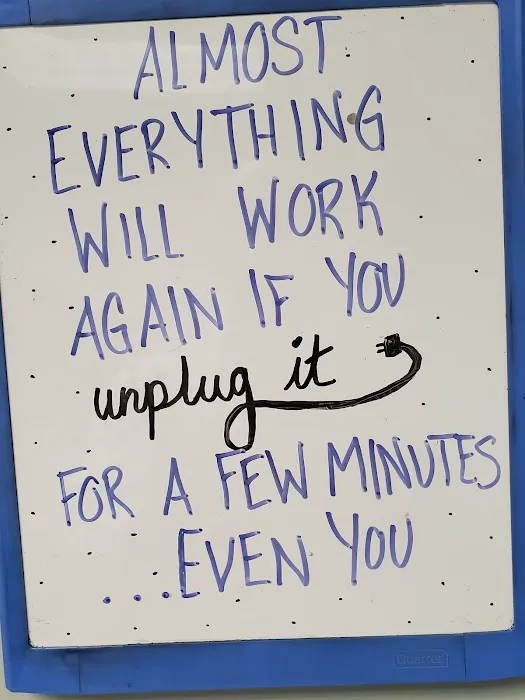 ALMOST
EVERYTHING
WILL WORK
AGAIN IF YOU
unplug it
FOR A FEW MINUTES
...EVEN YOU
Quartet